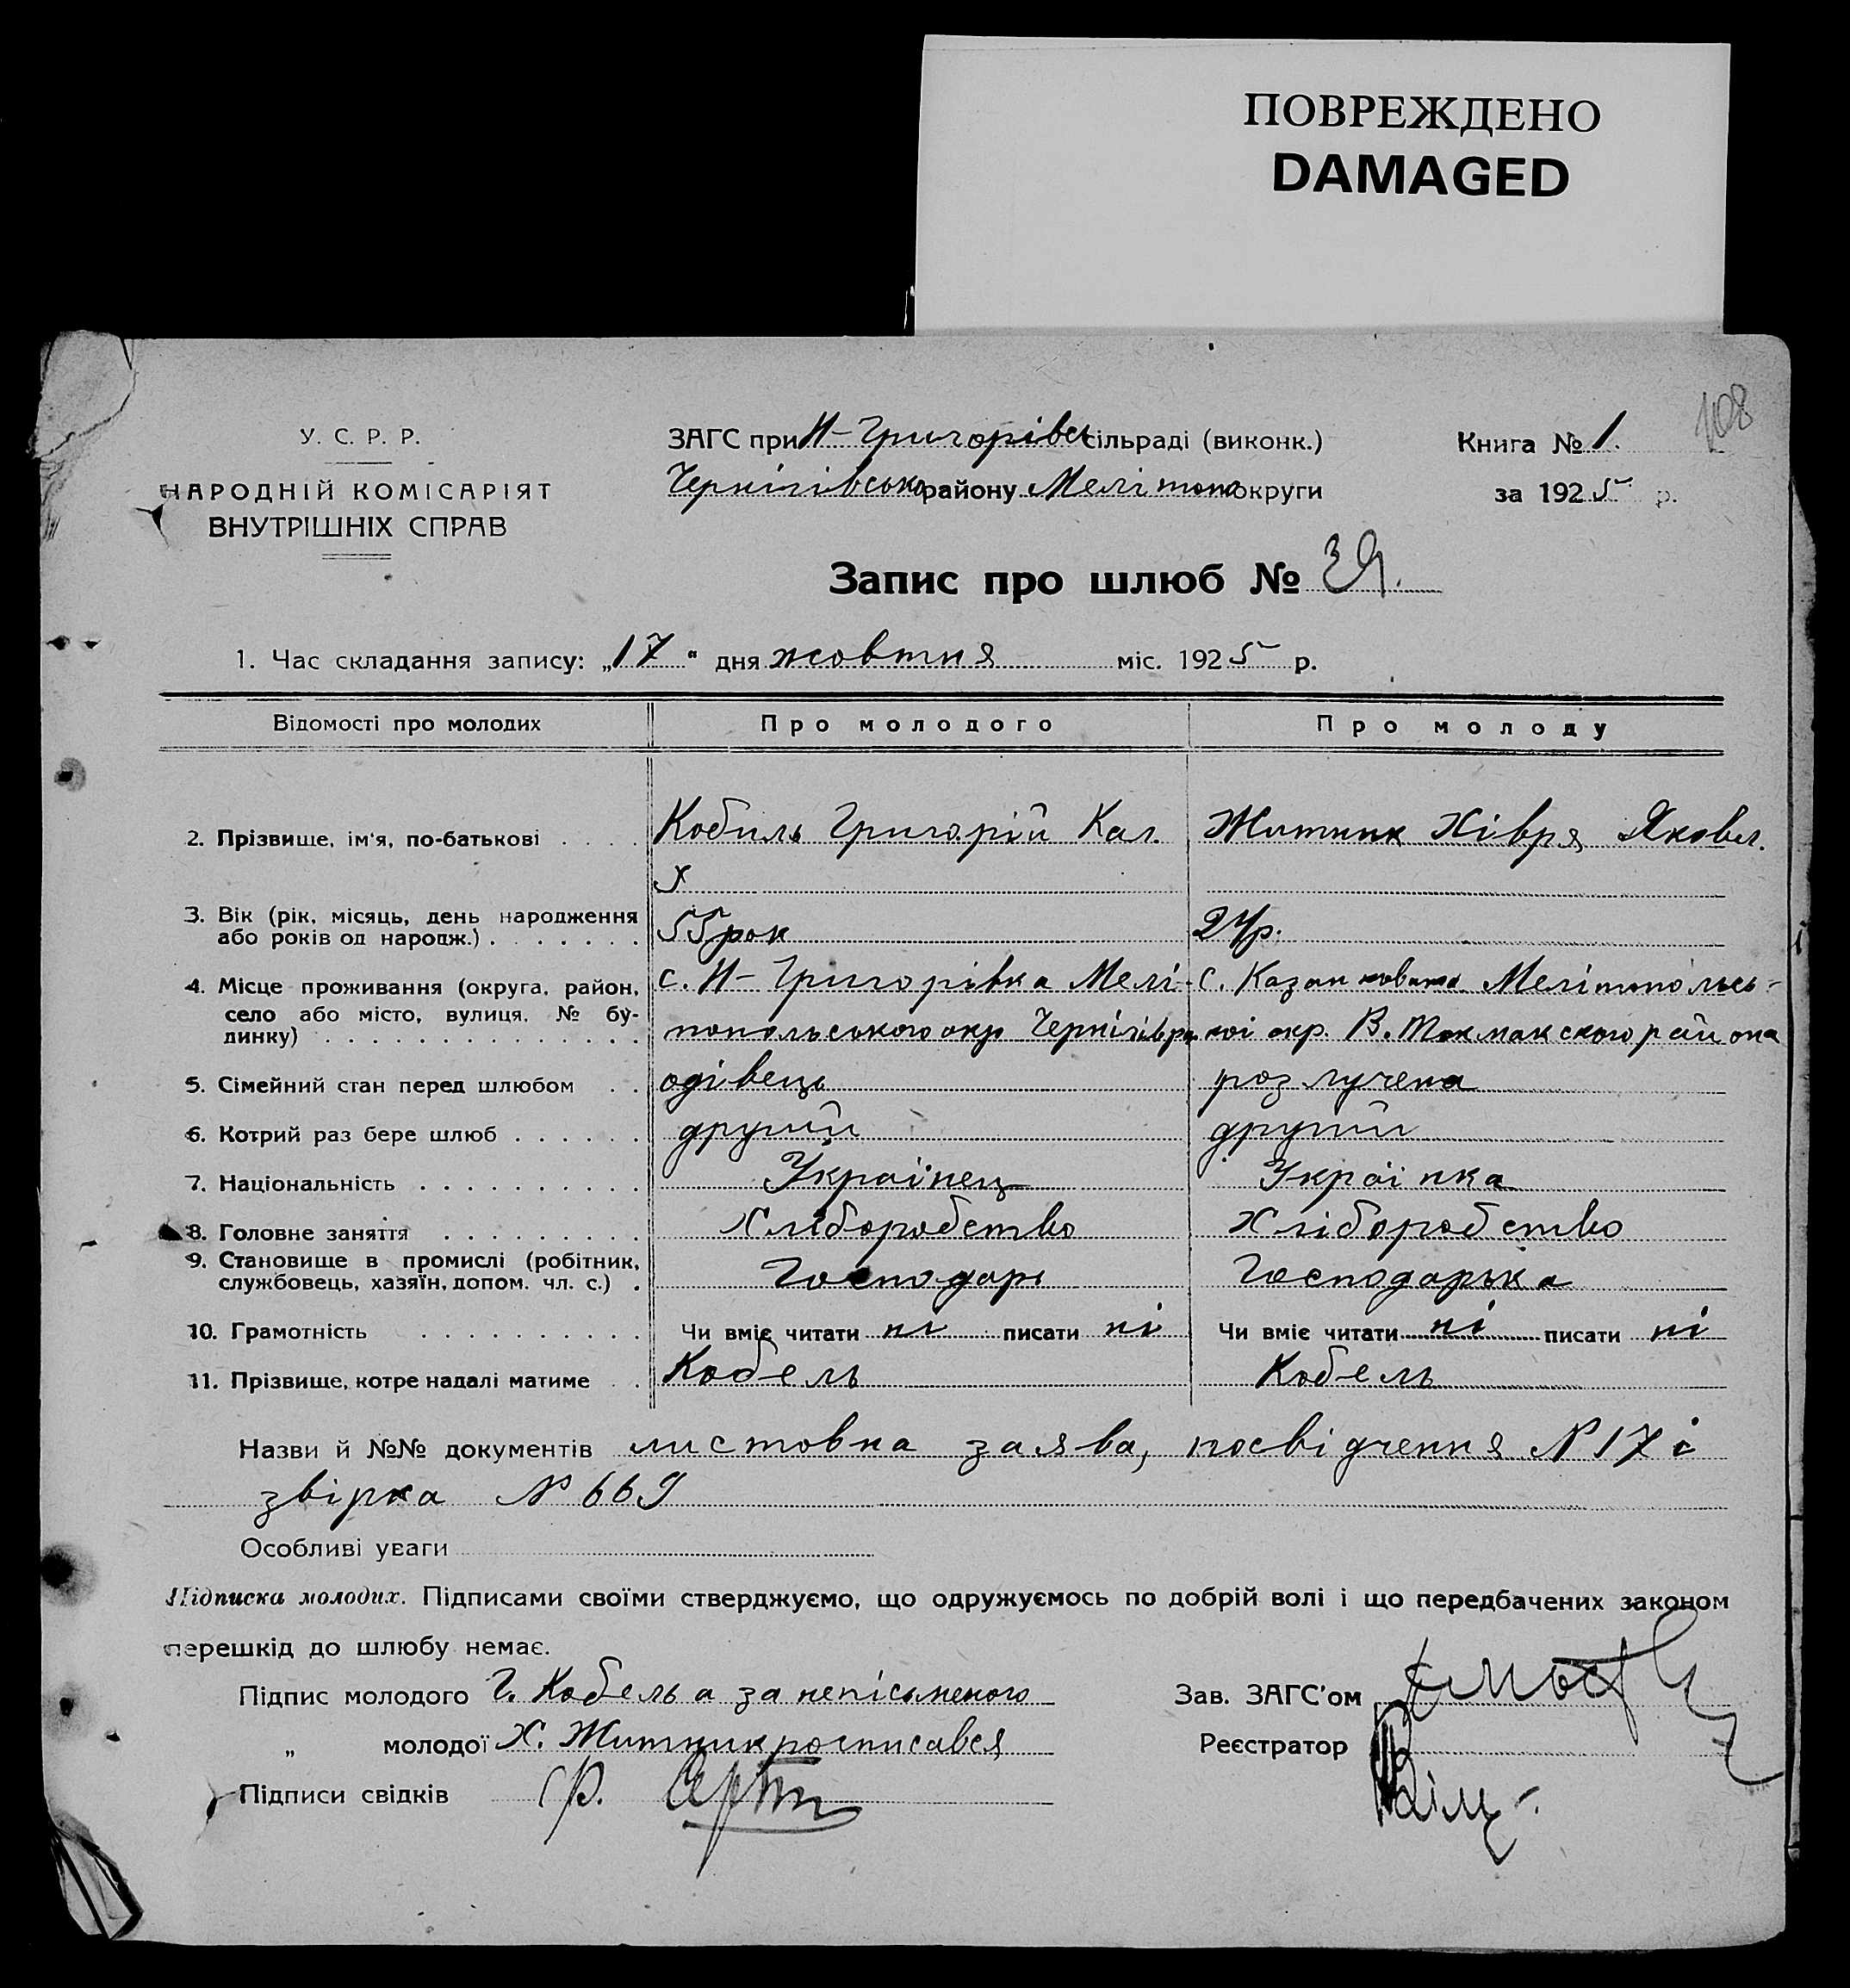 ПОВРЕЖДЕНО
DAMAGED
108
У. С. Р. Р.
НАРОДНІЙ КОМІСАРІЯТ
ВНУТРІШНІХ СПРАВ
ЗАГС при Н-Григорівсь сільраді (виконк.)
Чернігівсько району Мелітопо округи
Книга № 1.
за 1925 р.
Запис про шлюб № 39.
1. Час складання запису: „17“ дня жовтня міс. 1925 р.
Відомості про молодих Про молодого Про молоду
2. Прізвище, ім'я, по-батькові . . . . Кобиль Григорій Кал. Житник Хівря Яковл.
3. Вік (рік, місяць, день народження
або років од народж.) . . . . . . . 55 рок 24р.
4. Місце проживання (округа, район, с. Н-Григорівка Мелі- с. Казанковата Мелітопольсь-
село або місто, вулиця, № бу-
динку) . . . . . . . . . . . . . . топольського окр Чернігів ра. кої окр. В. Токмакского района
5. Сімейний стан перед шлюбом . . одівець розлучена
6. Котрий раз бере шлюб . . . . . . другий другий
7. Національність . . . . . . . . . . Українец Українка
8. Головне заняття . . . . . . . . . Хліборобство Хліборобство
9. Становище в промислі (робітник,
службовець, хазяїн, допом. чл. с.) . Господарь Господарька
10. Грамотність . . . . . . . . . . Чи вміє читати ні писати ні Чи вміє читати ні писати ні
11. Прізвище, котре надалі матиме . . Кобель Кобель
Назви й №№ документів листовна заява, посвідчення № 17 і
звірка № 669
Особливі уваги
Підписка молодих. Підписами своїми стверджуємо, що одружуємось по добрій волі і що передбачених законом
перешкід до шлюбу немає.
Підпис молодого Г. Кобель а за непісьменого
Зав. ЗАГС'ом
„ молодої Х. Житник росписався
Реєстратор
Підписи свідків